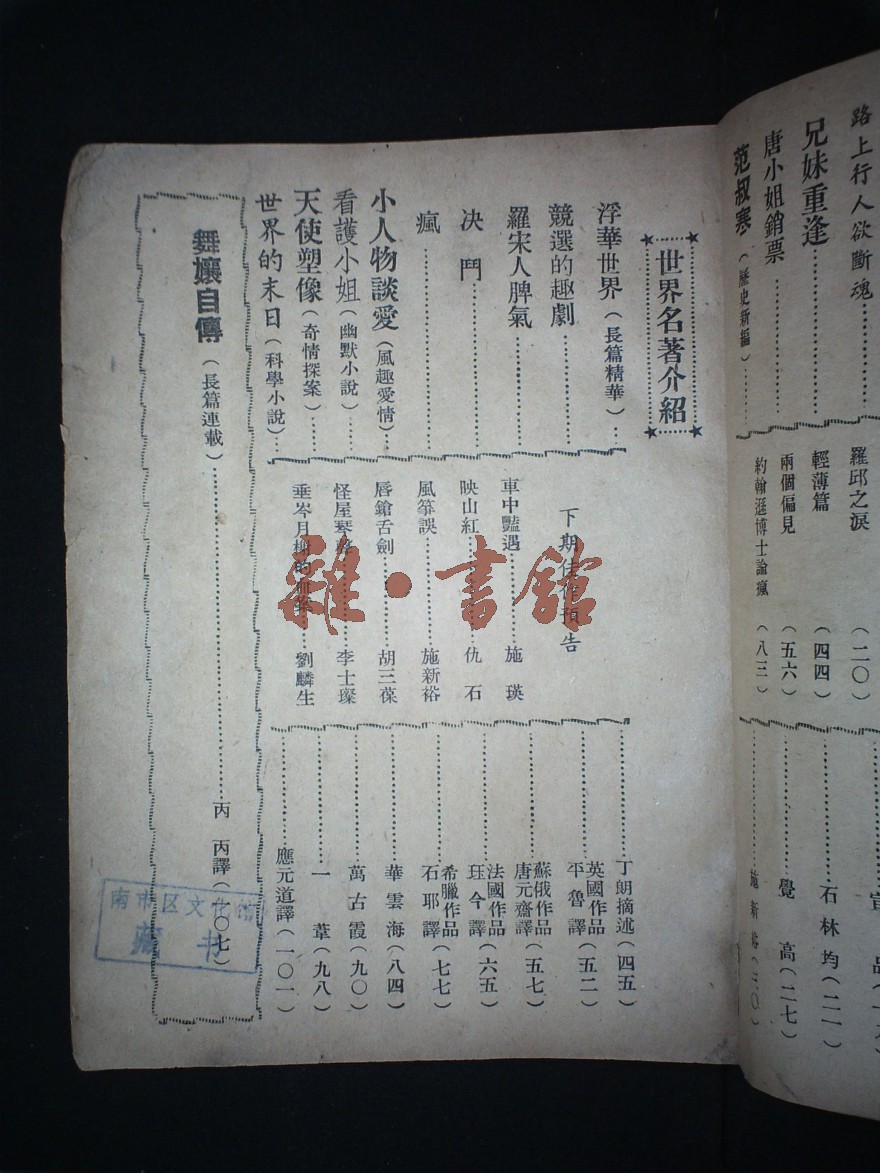 路上行人欲斷魂
兄妹重逢
唐小姐銷票
范叔寒（歷史新編）
羅邱之淚（二〇）
輕薄篇（四四）
兩個偏見（五六）
約翰遜博士論瘋（八三）
石林均（二一）
覺高（二七）
施新裕（三〇）
世界名著介紹
浮華世界（長篇精華）
丁朗摘述（四五）
競選的趣劇
英國作品
平魯譯（五二）
羅宋人脾氣
蘇俄作品
唐元齋譯（五七）
決鬥
法國作品
玨今譯（六五）
瘋
希臘作品
石耶譯（七七）
小人物談愛（風趣愛情）
華雲海（八四）
看護小姐（幽默小說）
萬古霞（九〇）
天使塑像（奇情探案）
一葦（九八）
世界的末日（科學小說）
應元道譯（一〇一）
下期佳作預告
車中豔遇 施瑛
映山紅 仇石
風箏誤 施新裕
唇鎗舌劍 胡三葆
怪屋琴聲 李士璨
垂岑月榭的 劉麟生
舞孃自傳（長篇連載）丙丙譯（一〇七）
南市区文化馆
藏书
雜·書館